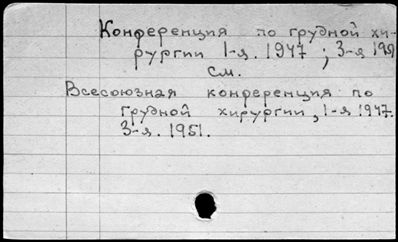 Конференция по грудной хи-
рургии 1-я. 1947 ; 3-я 195
см.
Всесоюзная конференция по
грудной хирургии, 1-я 1947.
3-я. 1951.